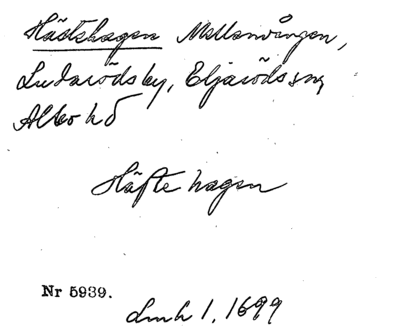 Hästhagen Mellanvången,
Ludarödsby, Eljaröds sn,
Albo hd
Häfte hagen
Nr 5939.
Lmh 1, 1699